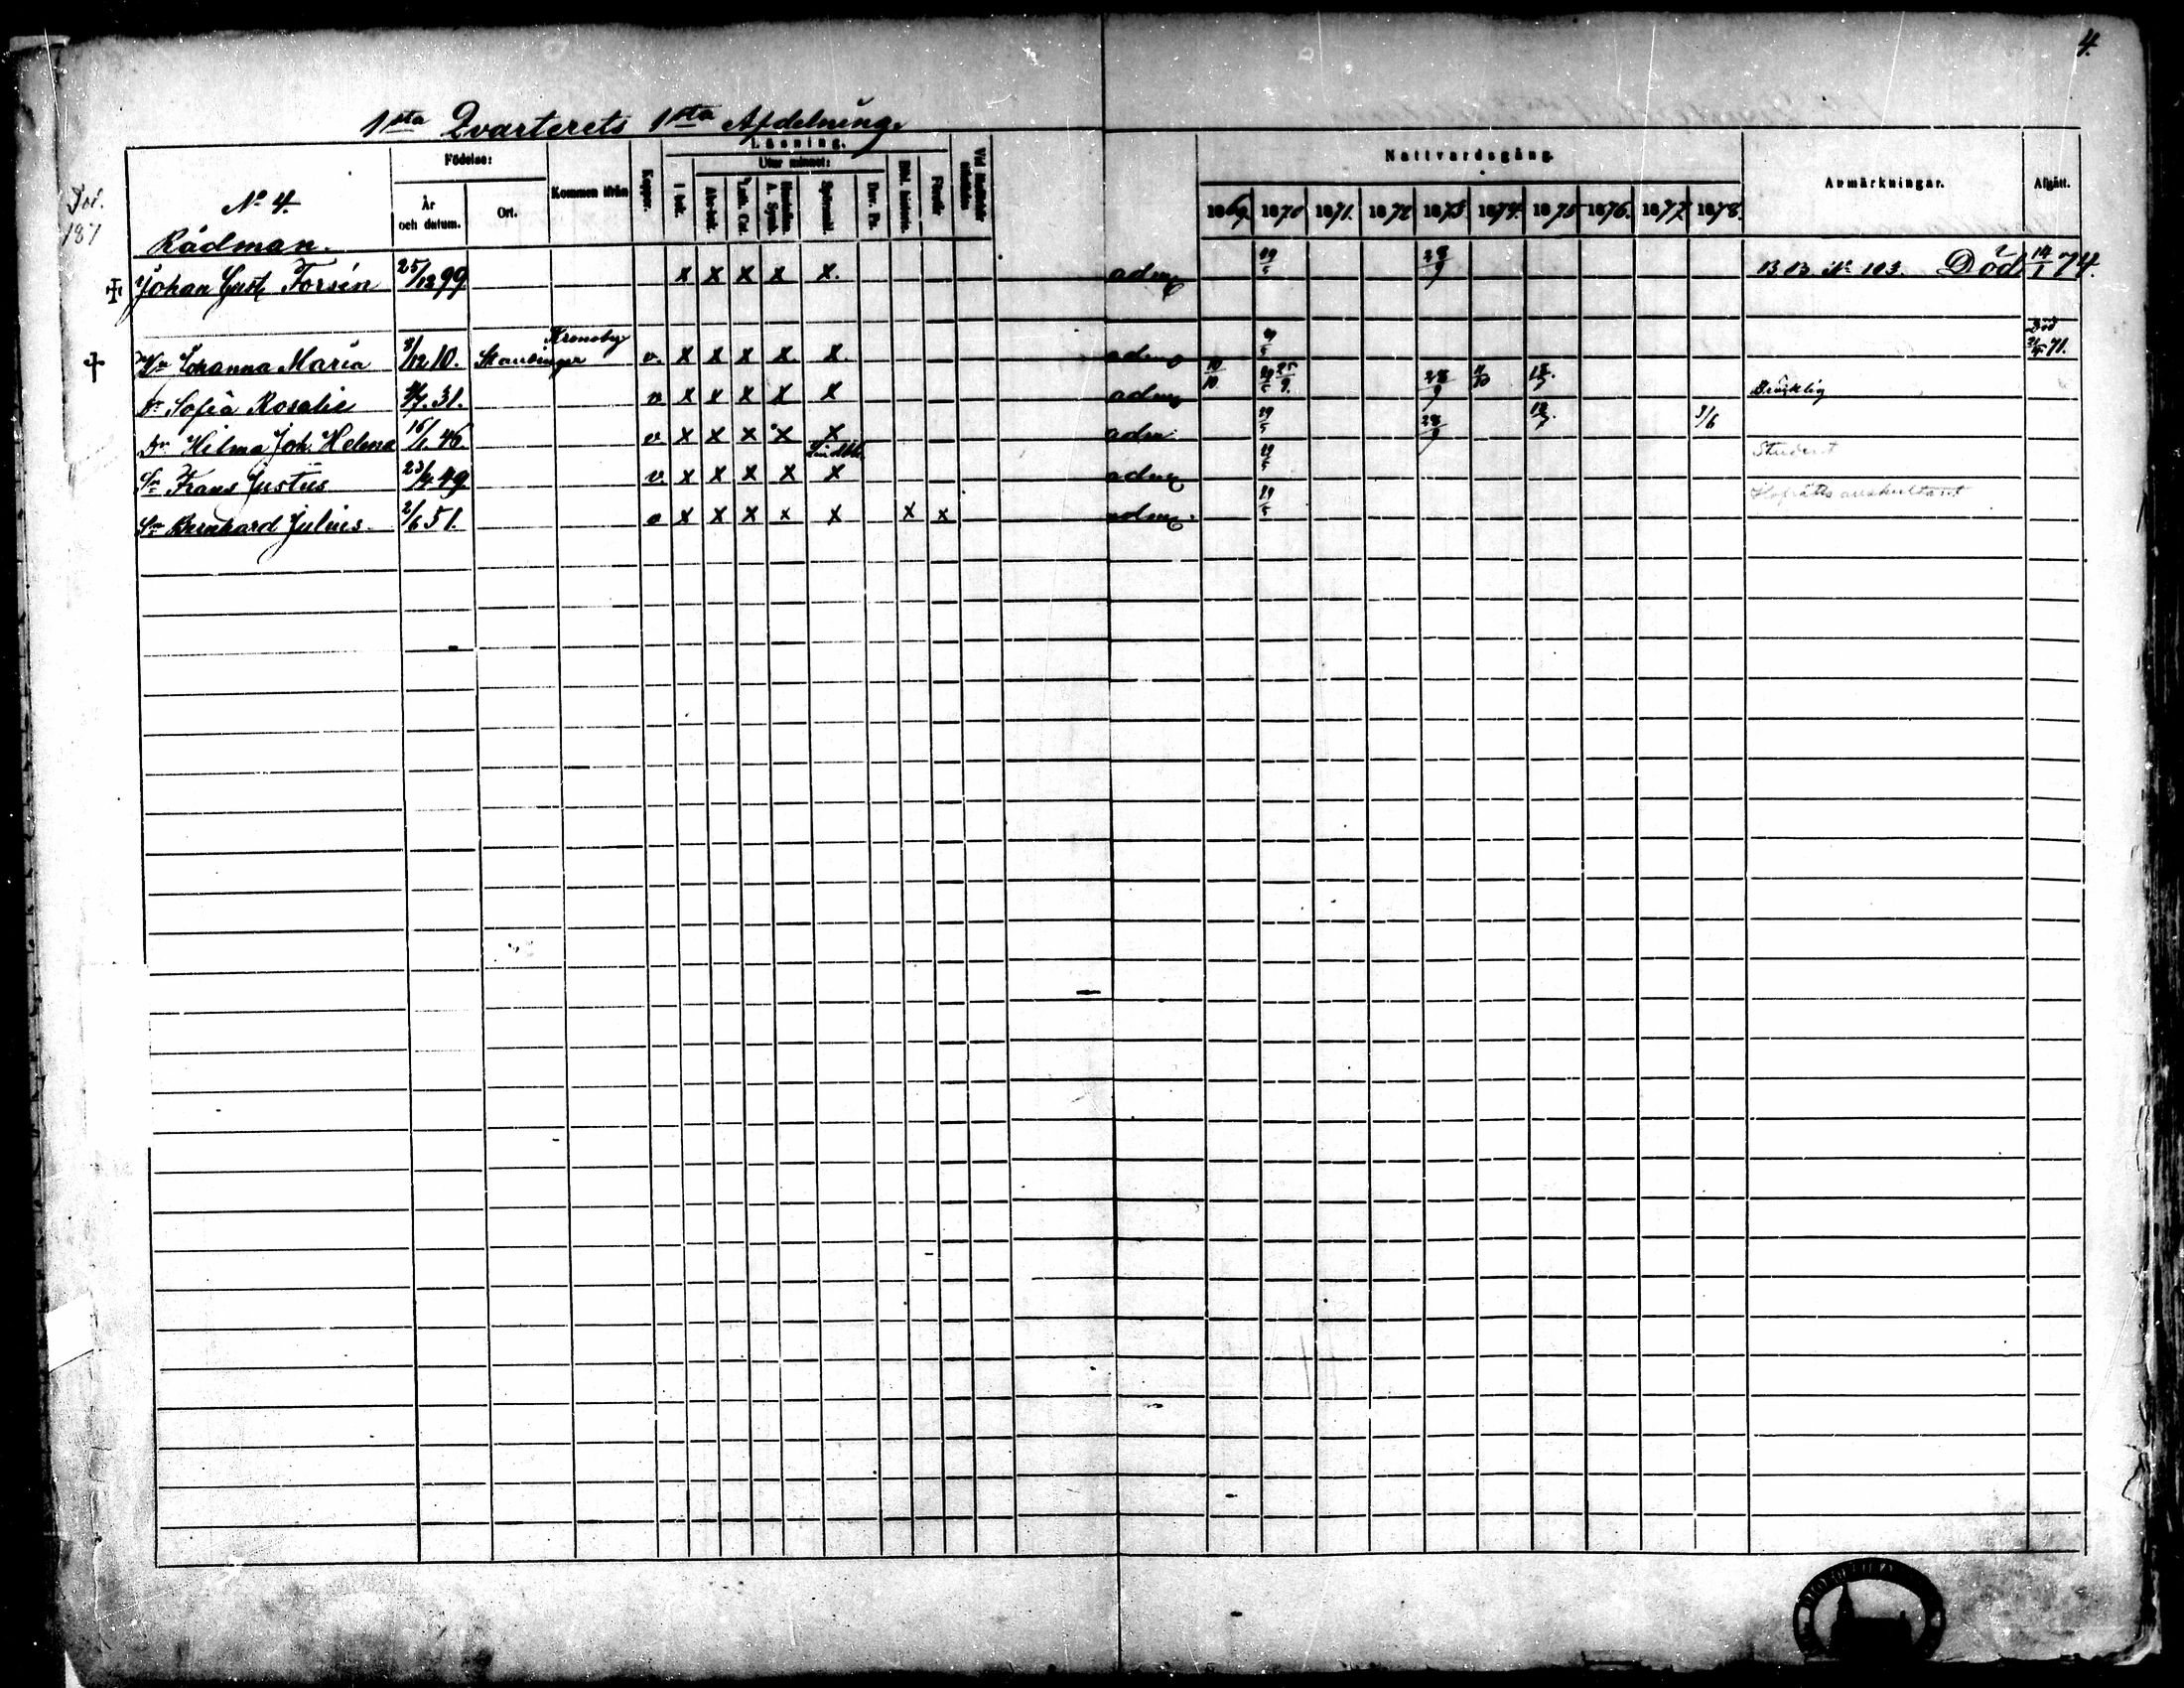 4.
1sta Qvarterets 1sta Afdelning.
Födelse: Kommen ifrån Koppor. Läsning. Nattvardsgång. Anmärkningar. Afgått.
Utur minnet:
År och datum. Ort. I bok. Abc-bok. Luth. Cat. Hustaflan. A. Symb. Spörsmål Dav. Ps. Bibl. historia. Förstår
1869. 1870 1871. 1872 1873 1874. 1875 1876. 1877 1878.
No 4.
187
Rådman.
Johan Gust Forsén 25/12 99 x x x x x. adm 29/5 28/9 B B No 103. Död 14/1 74.
Kronoby Död
Hu Johanna Maria 3/12 10. v. x x x x x adm 29/5 71.
Dr Sofia Rosalie 31. v x x x x x adm 10/10 29/5 25/9. 28/9 Bräcklig
Dr Hilma Joh. Helena 15/1. 46. v x x x x x adm 29/5 28/9 9/6
Sn Frans Justus 23/ 49 v. x x x x x adm 29/5 Student
Sn Bernhard Julius 2/6 51. v x x x x x x x adm. 29/5 Hofrätts auskultant